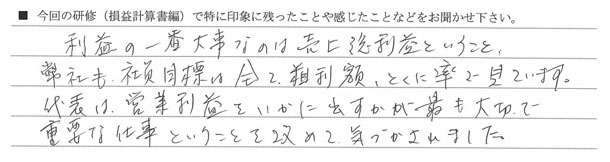 ■ 今回の研修（損益計算書編）で特に印象に残ったことや感じたことなどをお聞かせ下さい。
利益の一番大事なのは売上総利益ということ、
弊社も、社員目標は全て、粗利額、とくに率で見ています。
代表は、営業利益をいかに出すかが最も大切で
重要な仕事ということを改めて、気づかされました